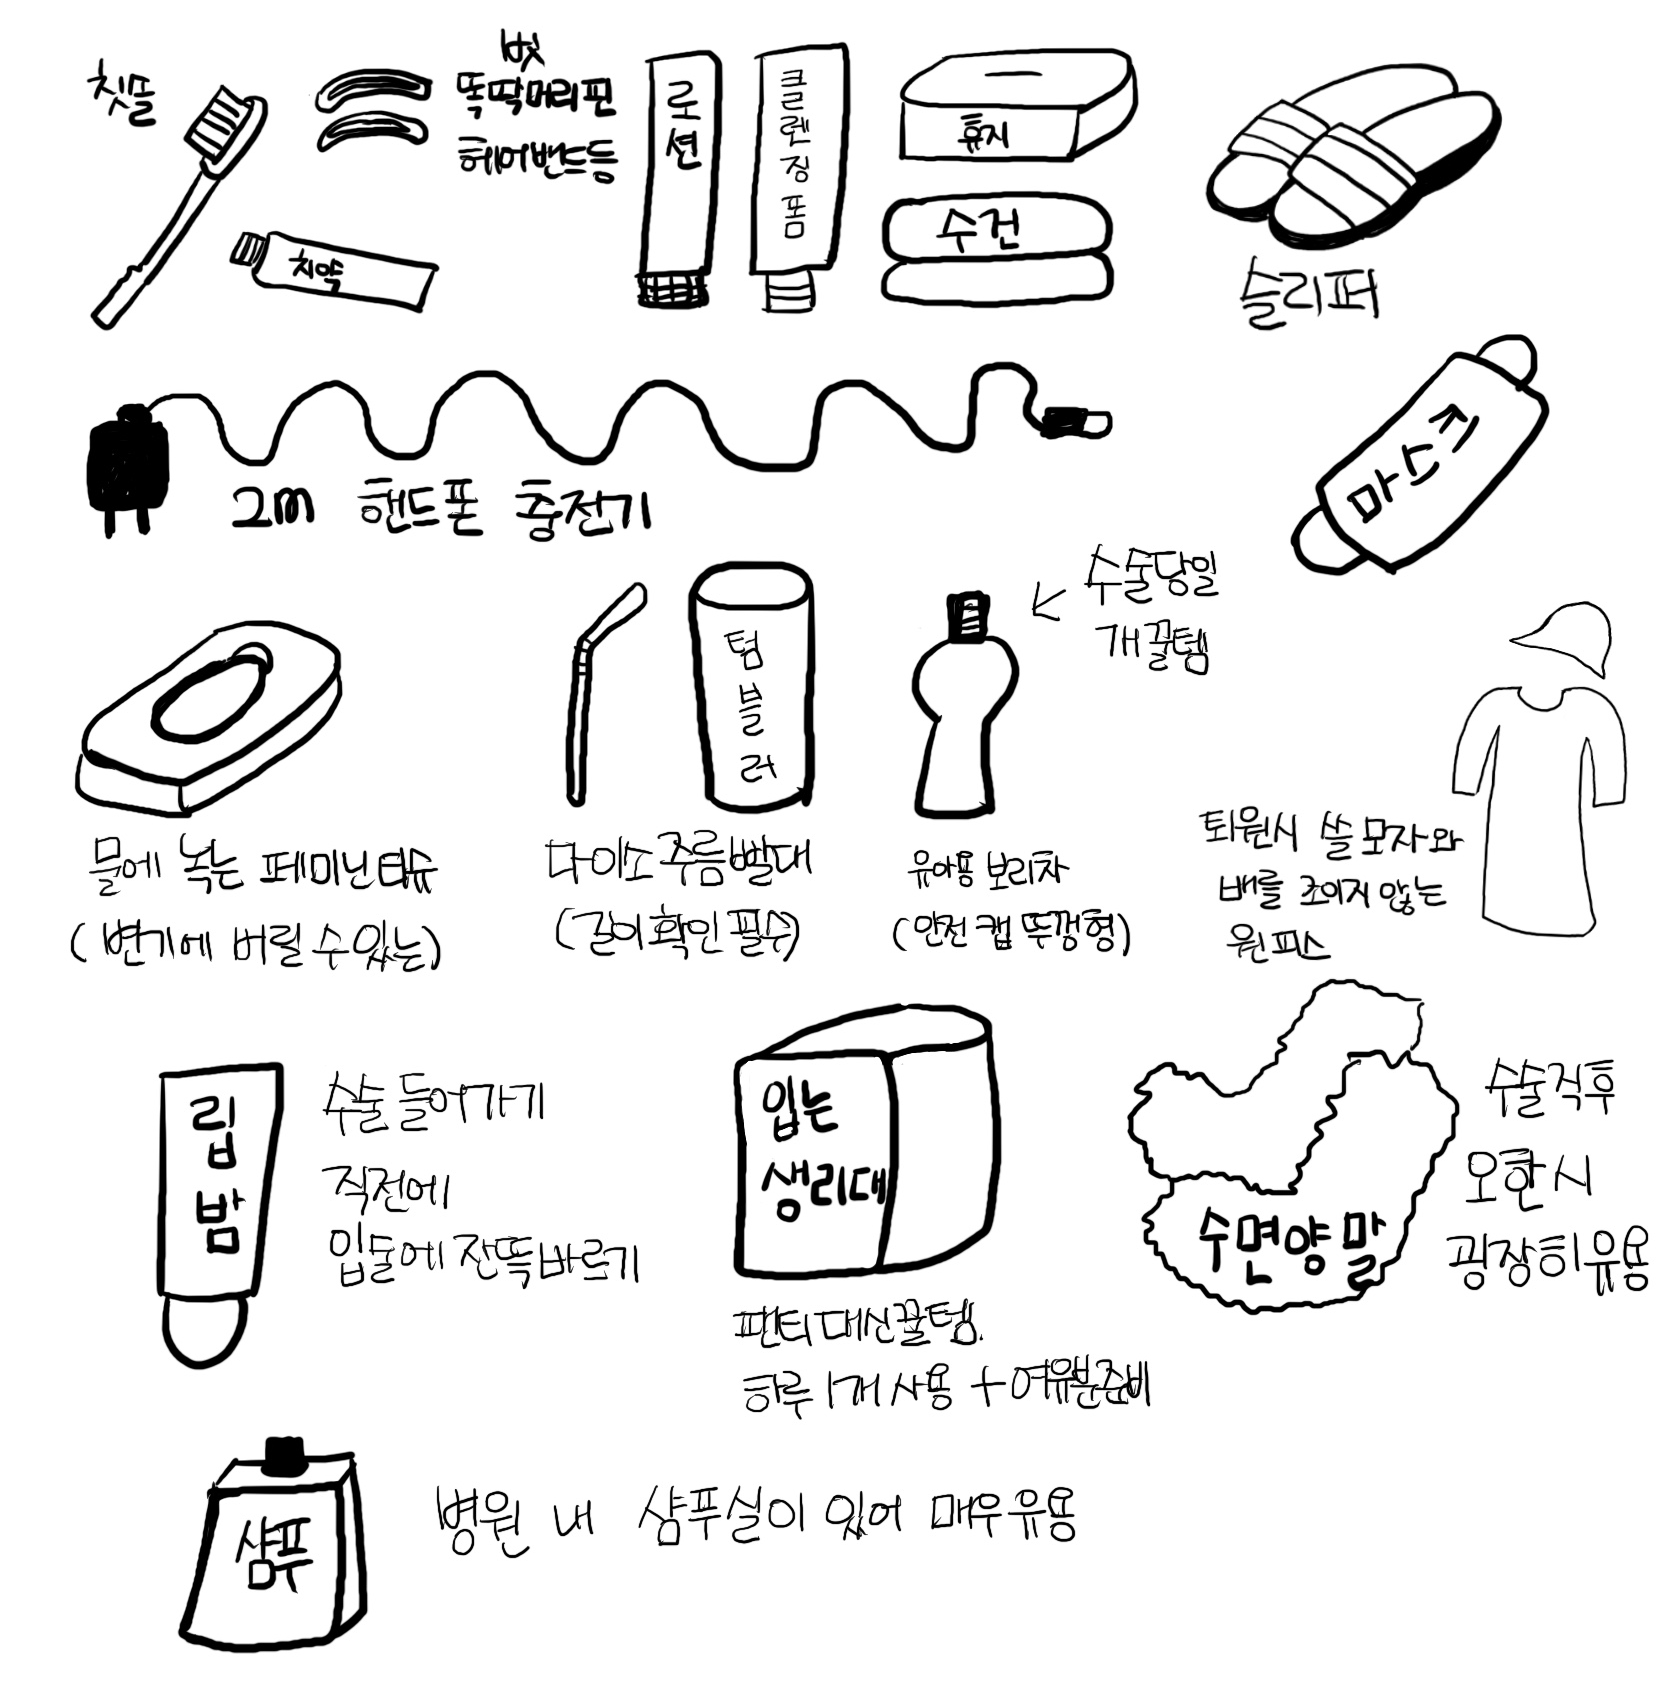 칫뚤
벗
똑딱머리핀
헤어밴드등
치약
로션
클렌징폼
휴지
수건
슬리퍼
2m 핸드폰 충전기
마스크
물에 녹는 페미닌티슈
(변기에 버릴 수 있는)
텀블러
다이소 주름빨대
(길이확인 필수)
수술당일
개꿀템
유아용 보리차
(안전캡 뚜껑형)
퇴원시 쓸 모자와
배를 조이지 않는
원피스
립밤
수술 들어가기
직전에
입술에 잔뜩바르기
입는
생리대
팬티 대신꿀템.
하루 1개 사용 + 여유분준비
수면양말
수술직후
오한시
굉장히유용
샴푸
병원 내 샴푸실이 있어 매우유용